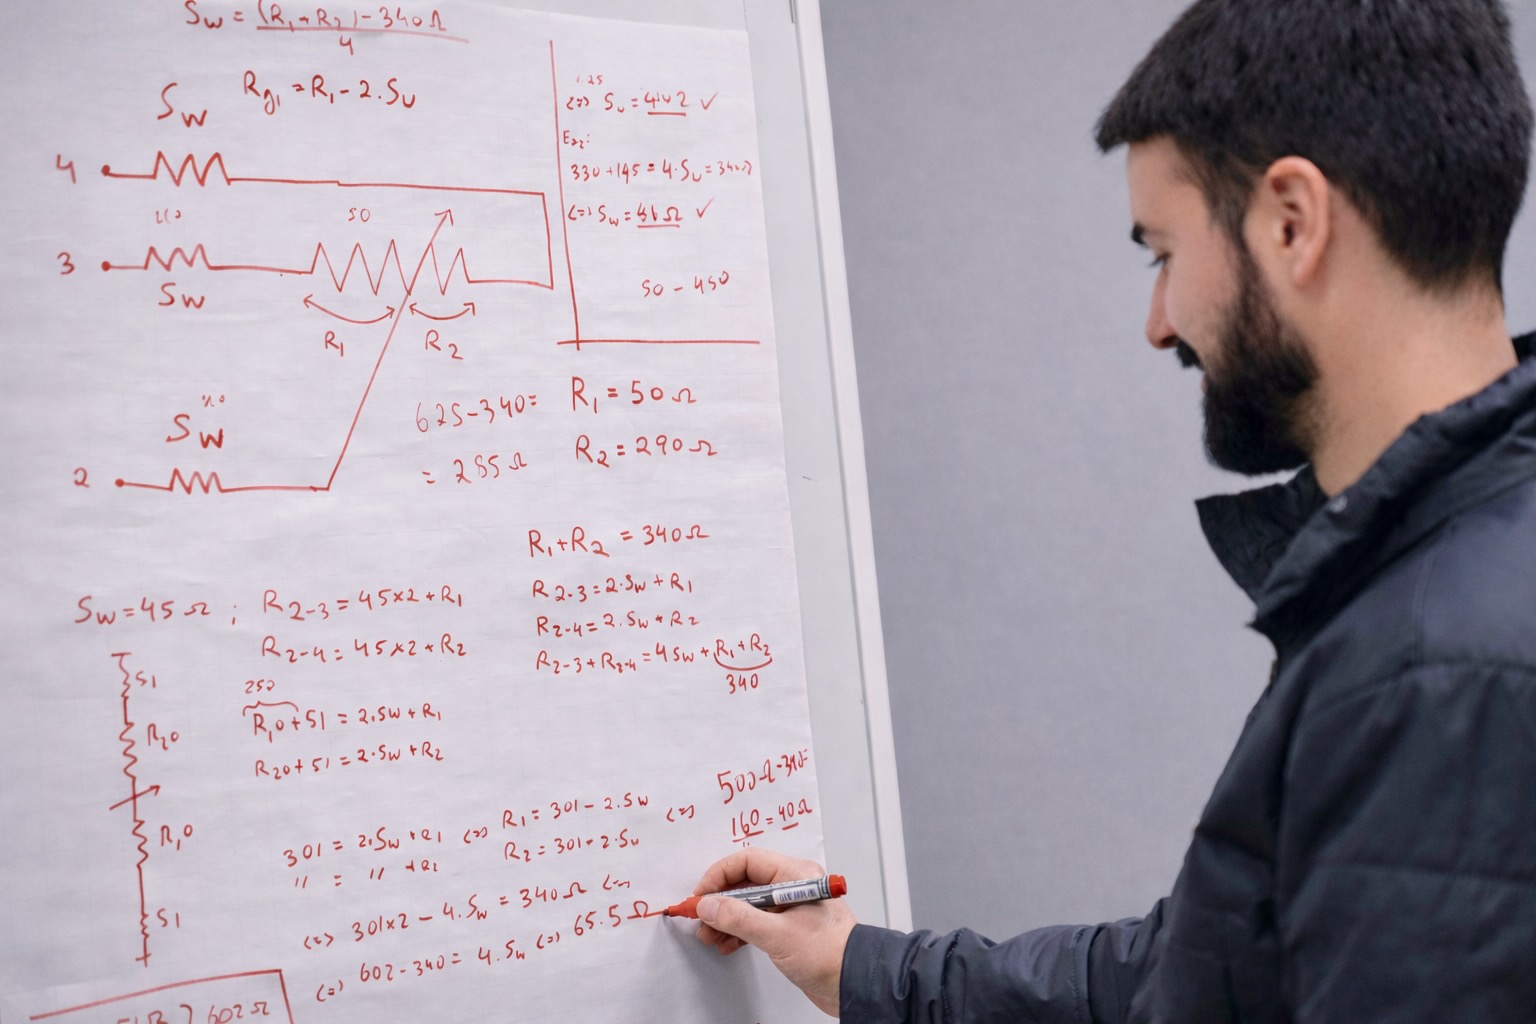 Sw = (R₁ + R₂) - 340 Ω
4
Rg₁ = R₁ - 2.Sw
Sw
4
50
3
Sw
R₁
R₂
Sw
2
1.25
Ex₂:
330 + 145 = 4.Sw = 340Ω
<=> Sw = Ω ✓
50 - 450
625 - 340 =
= 285 Ω
R₁ = 50 Ω
R₂ = 290 Ω
R₁ + R₂ = 340 Ω
R₂₋₃ = 2.Sw + R₁
R₂₋₄ = 2.Sw + R₂
R₂₋₃ + R₂₋₄ = 4Sw + R₁ + R₂
340
Sw = 45 Ω ; R₂₋₃ = 45x2 + R₁
R₂₋₄ = 45x2 + R₂
250
R₁0 + 51 = 2.Sw + R₁
R₂0 + 51 = 2.Sw + R₂
51
R₂0
R₁0
51
301 = 2.Sw + R₁ <=> R₁ = 301 - 2.Sw <=>
" = " + R₂ R₂ = 301 - 2.Sw
500Ω - 340 =
160 = 40Ω
<=> 301x2 - 4.Sw = 340 Ω <=>
<=> 602 - 340 = 4.Sw <=> 65.5 Ω
602 Ω